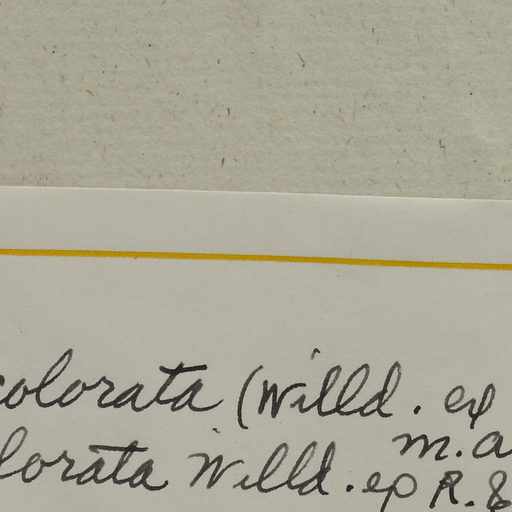 colorata (Willd. ex
M.A
lorata Willd. ex R. &